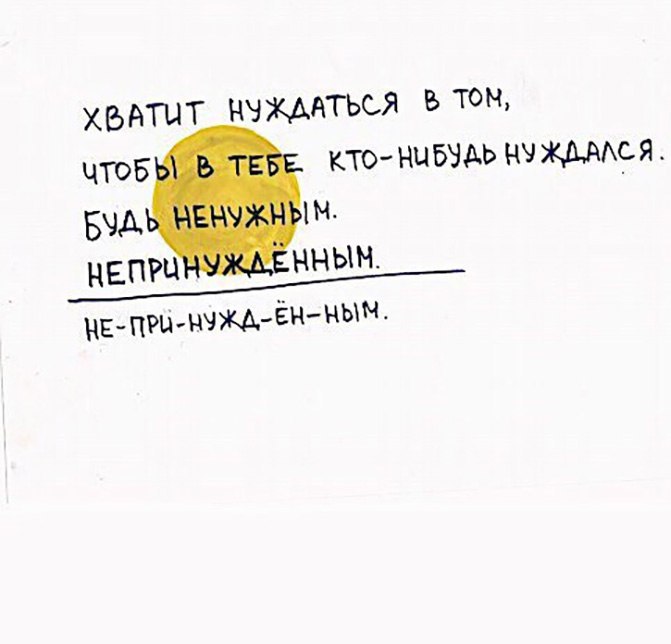 ХВАТИТ НУЖДАТЬСЯ В ТОМ,
ЧТОБЫ В ТЕБЕ КТО-НИБУДЬ НУЖДАЛСЯ.
БУДЬ НЕНУЖНЫМ.
НЕПРИНУЖДЁННЫМ.
НЕ-ПРИ-НУЖД-ЁН-НЫМ.